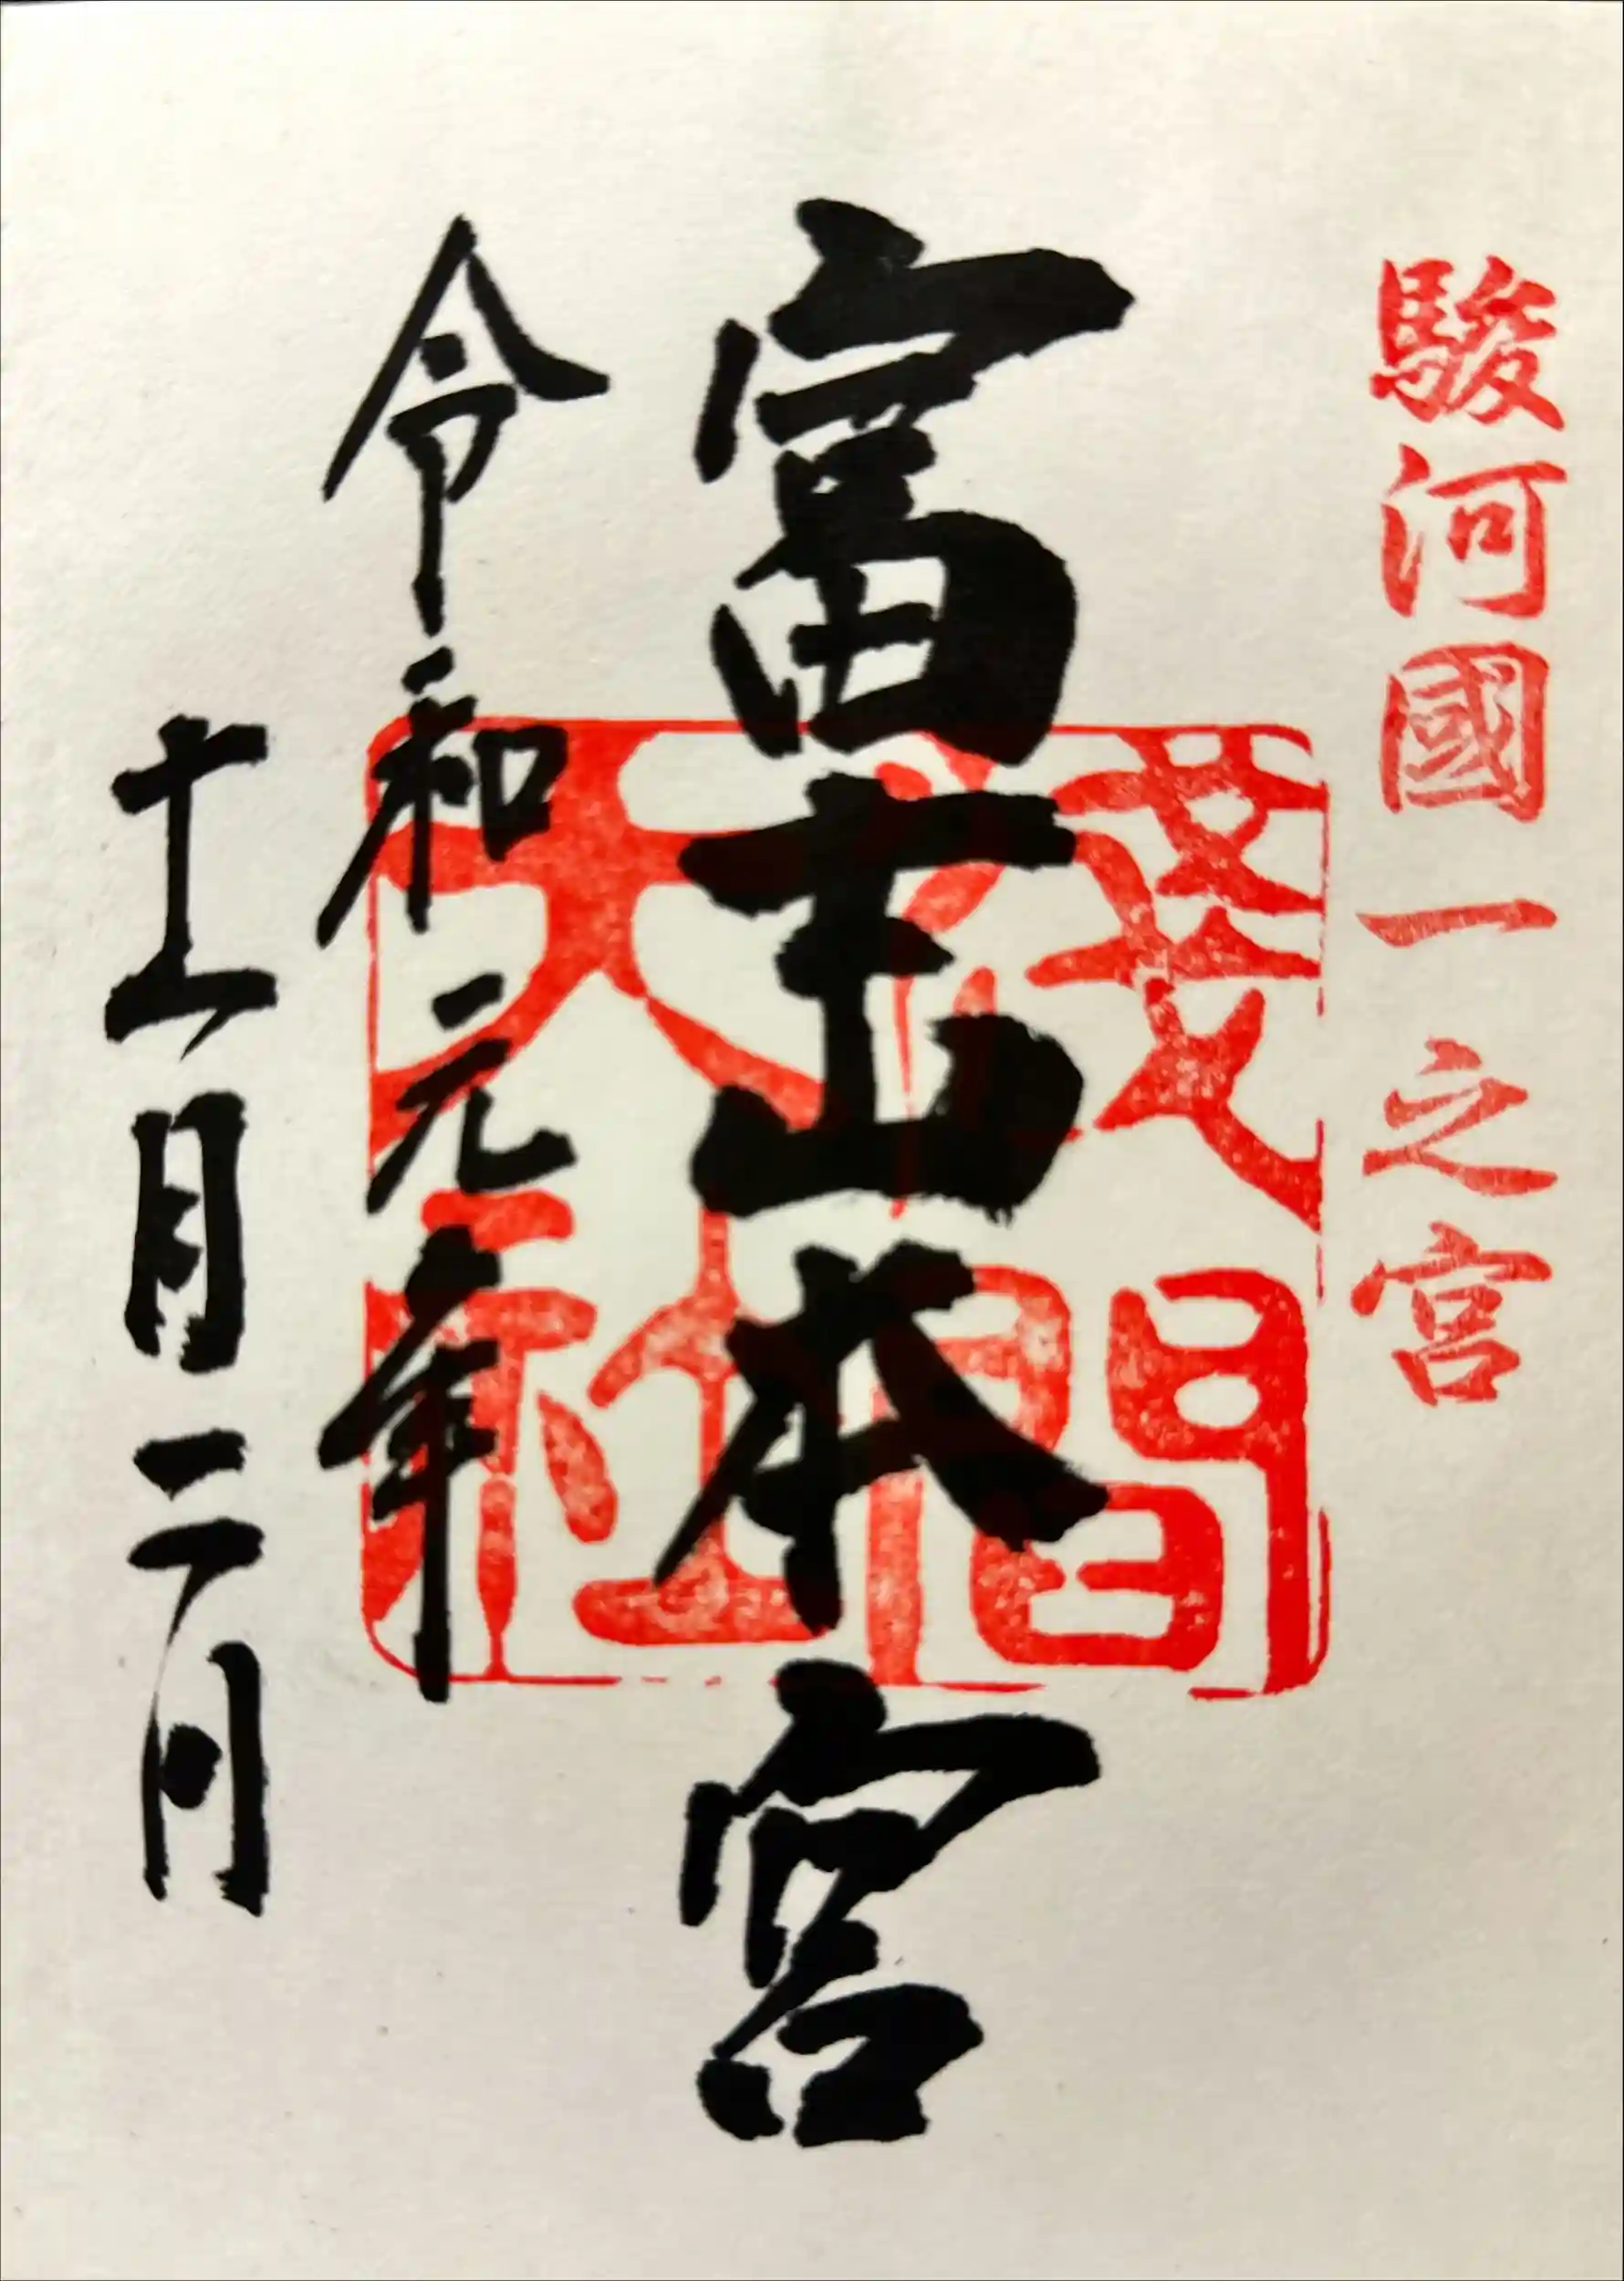 駿河國一之宮
富士山本宮
淺間大社
令和元年
十一月二日